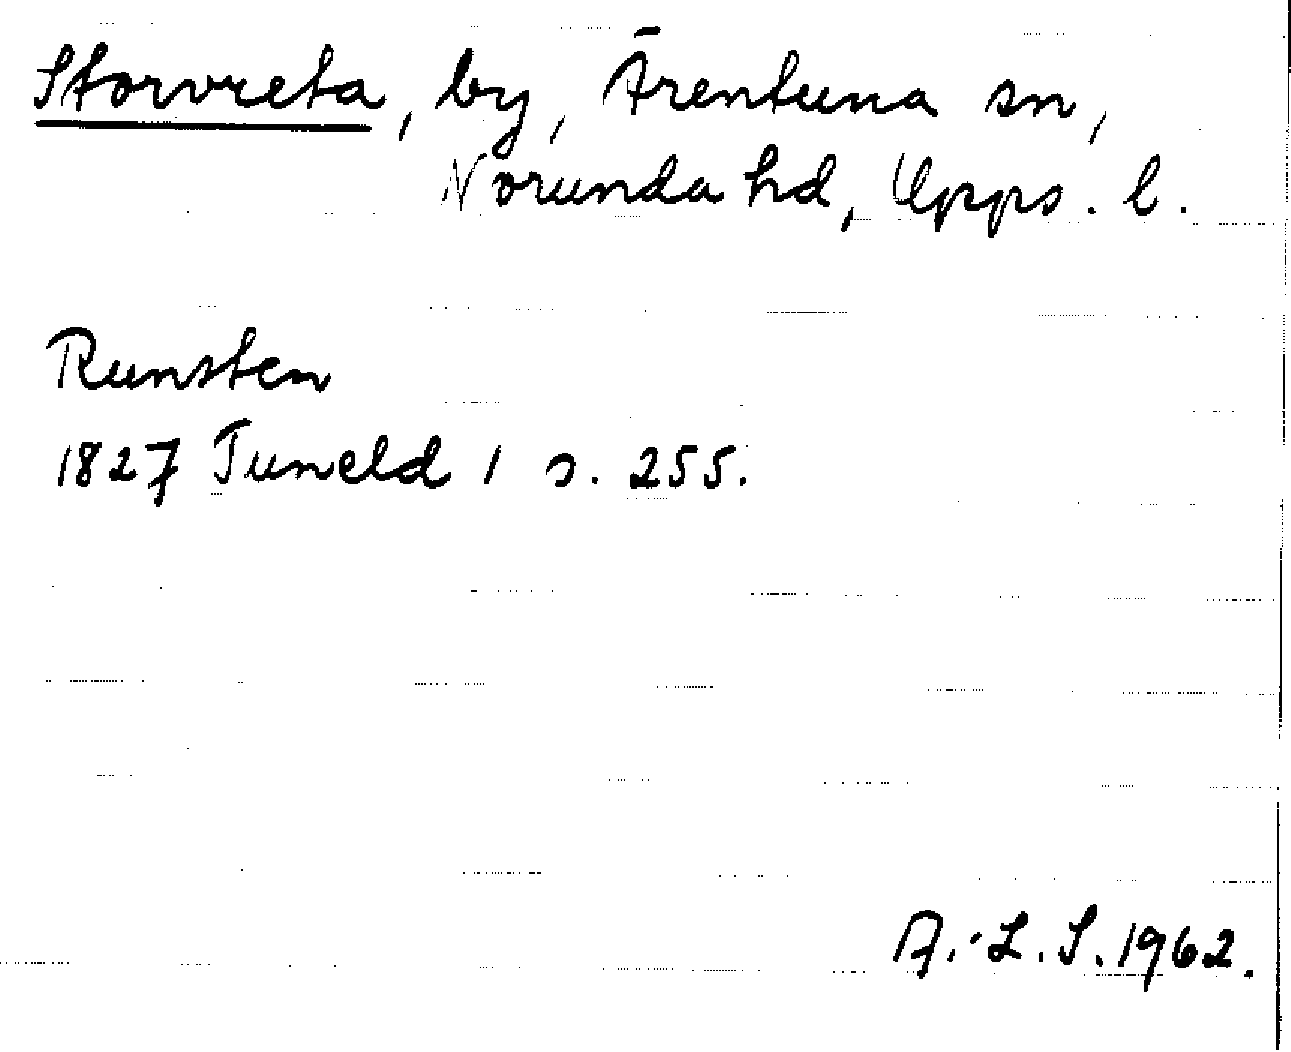 Storvreta, by, Ärentuna sn,
Norunda hd, Upps. l.
Runsten
1827 Tuneld 1 s. 255.
A.-L. S. 1962.